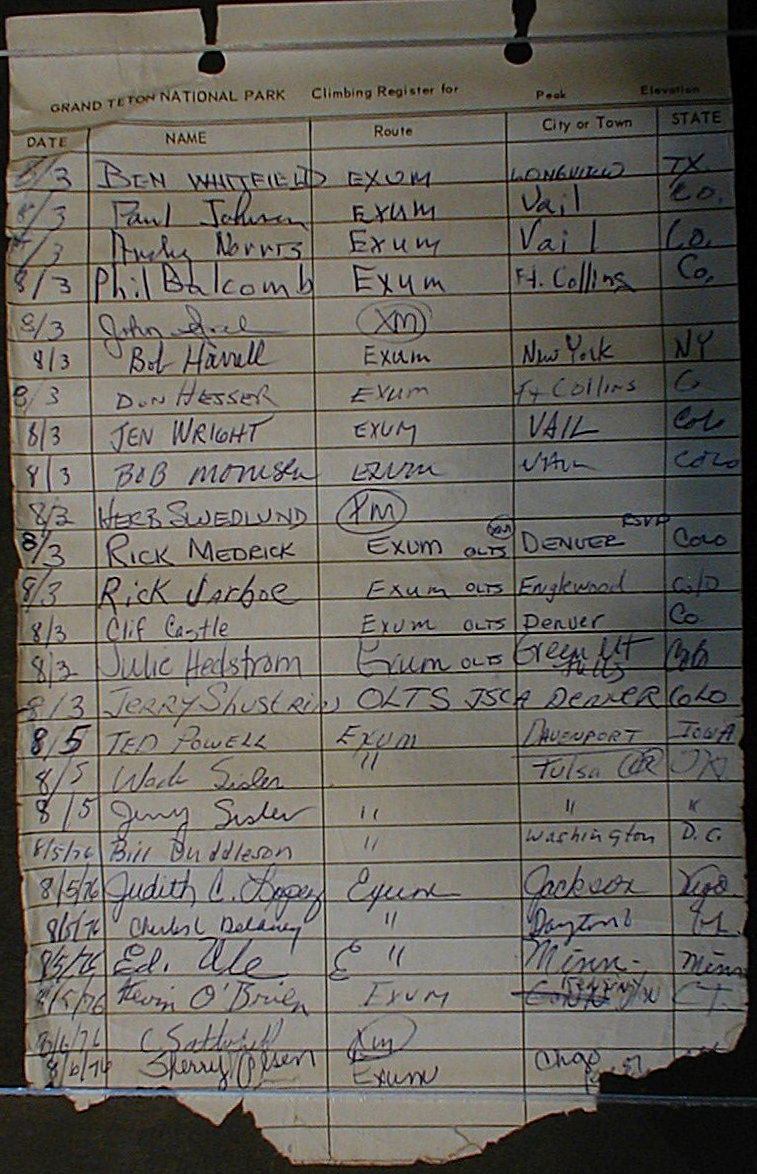 GRAND TETON NATIONAL PARK Climbing Register for Peak Elevation
DATE NAME Route City or Town STATE
8/3 BEN WHITFIELD EXUM LONGVIEW TX.
8/3 Paul Johnson EXUM Vail Co.
8/3 Andy Norris EXUM Vail Co.
8/3 Phil Balcomb Exum Ft. Collins Co.
8/3 John XM
8/3 Bob Harrell Exum New York NY
8/3 DON HESSER EXUM Ft Collins Co
8/3 JEN WRIGHT EXUM VAIL Colo
8/3 BOB EXUM VAIL COLO
8/3 HERB SWEDLUND XM
8/3 RICK MEDRICK EXUM OLTS DENVER RSVP COLO
8/3 Rick Jarboe Exum OLTS Englewood Colo
8/3 Clif Castle Exum OLTS Denver Co
8/3 Julie Hedstrom Exum OLTS Green Mt Falls Colo
8/3 JERRY OLTS JSCA DENVER COLO
8/5 TED POWELL EXUM DAVENPORT IOWA
8/5 Wade Sisler " Tulsa OK
8/5 Jerry Sisler " " "
8/5/76 Bill Duddleson " Washington D.C.
8/5/76 Judith C. Exum Jackson
8/5/76 Charles L Delaney " Dayton
8/5/76 Ed. E " Minn. Minn
8/5/76 Kevin O'Brien EXUM CT.
8/6/76 XM
8/6/76 Sherry Olsen Exum Chgo